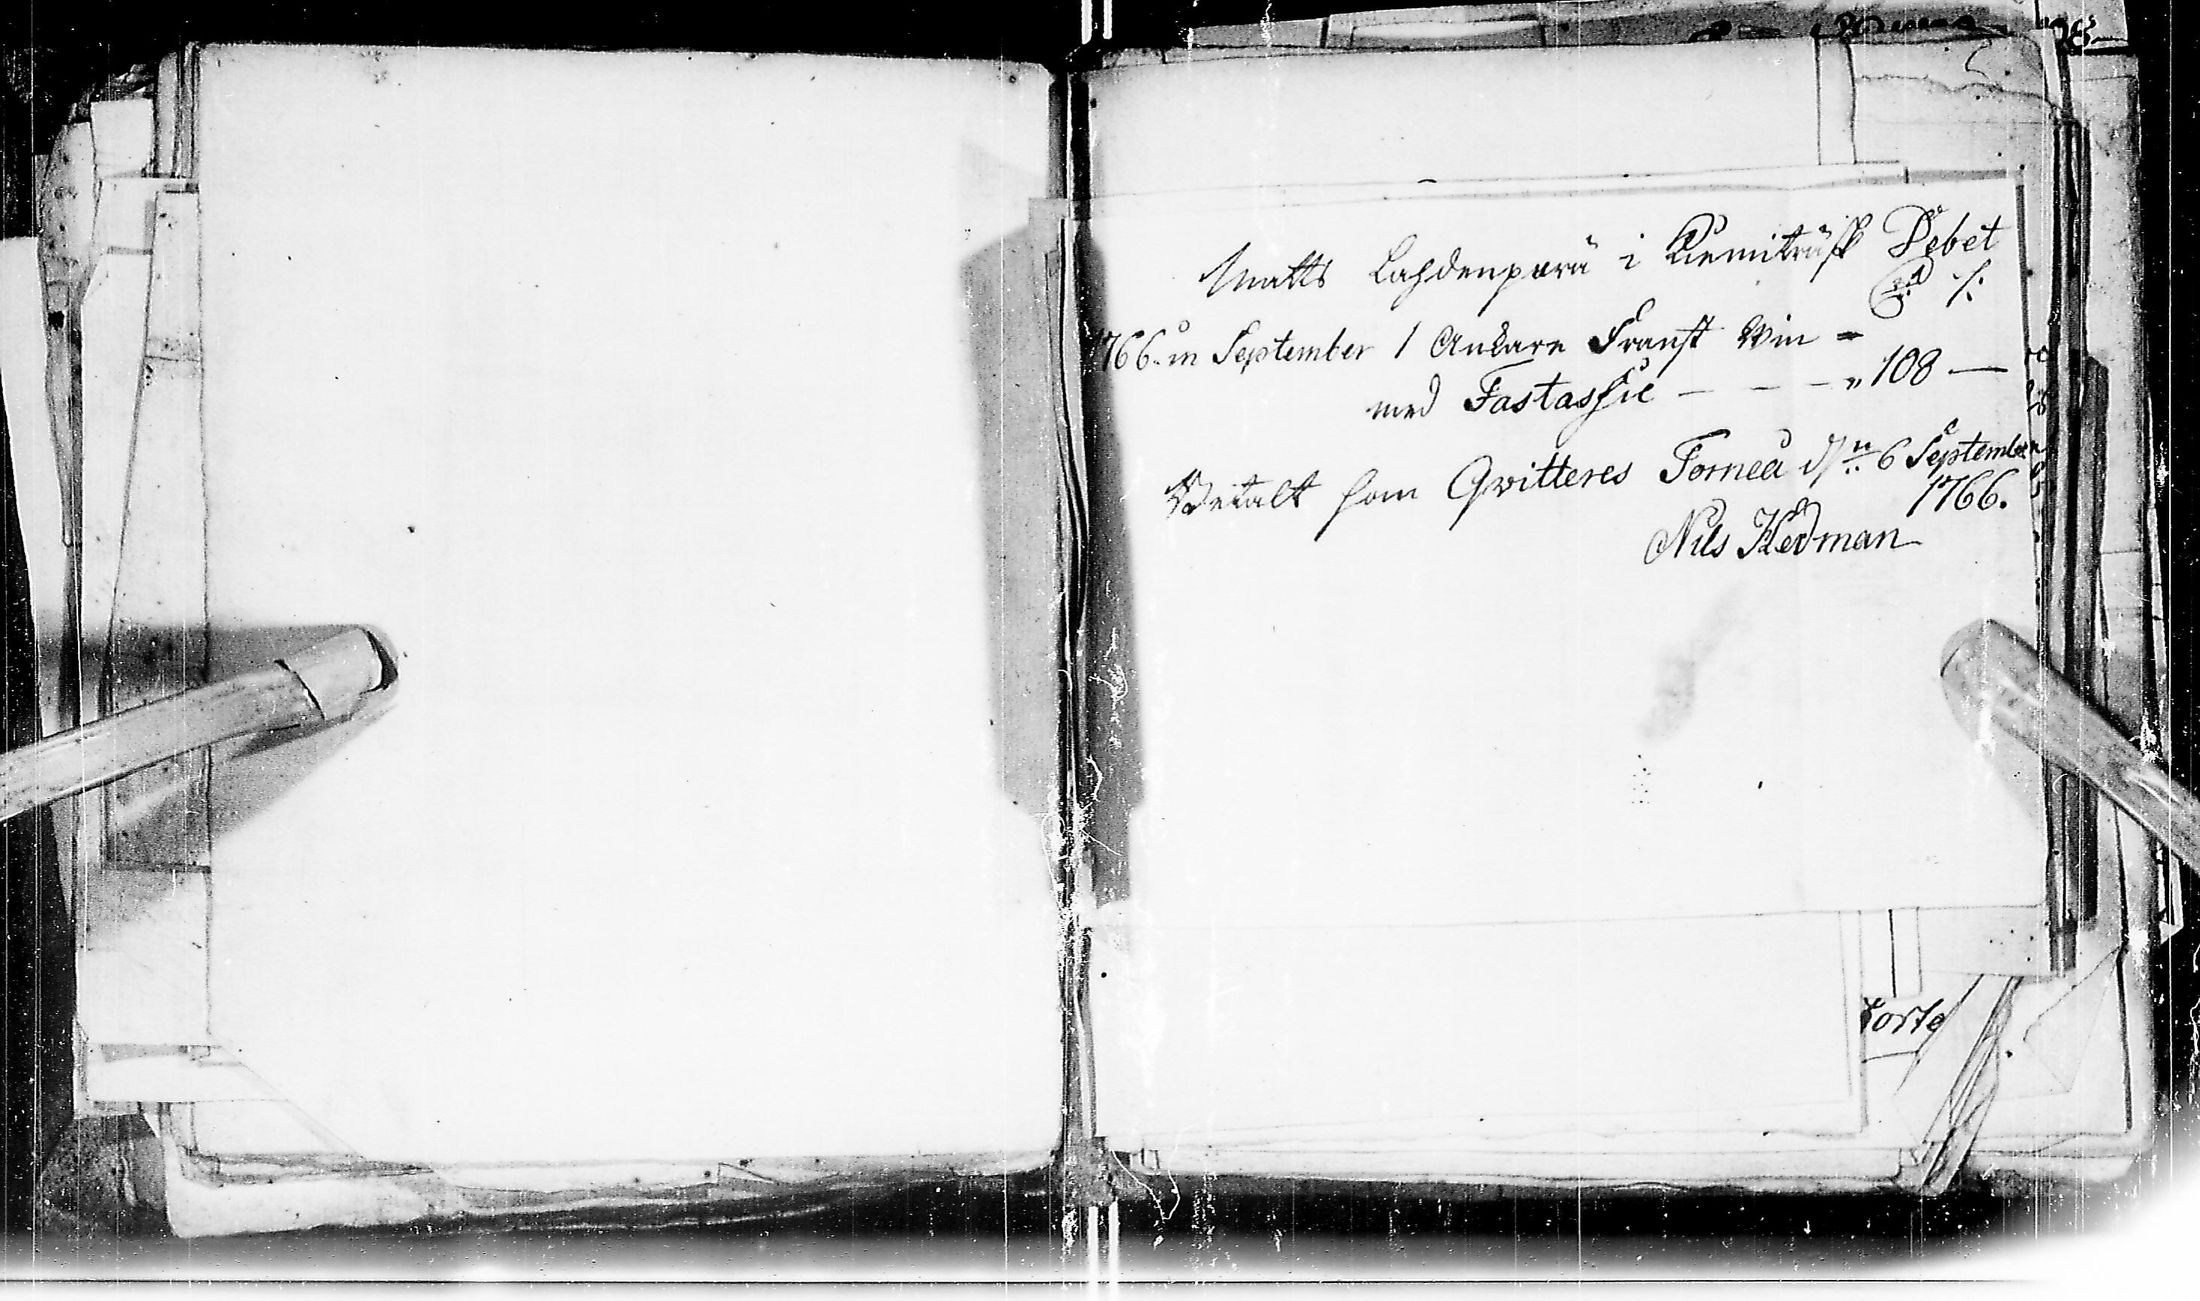 Matts Lahdenpärä i Kiemiträsk Debet
1766. in September 1 Ankare Franst Win =
med Fastassie — — — „ 108 —
Betalt som Qvitteres Torneå d:n 6 September
1766.
Nils Hedman
torte